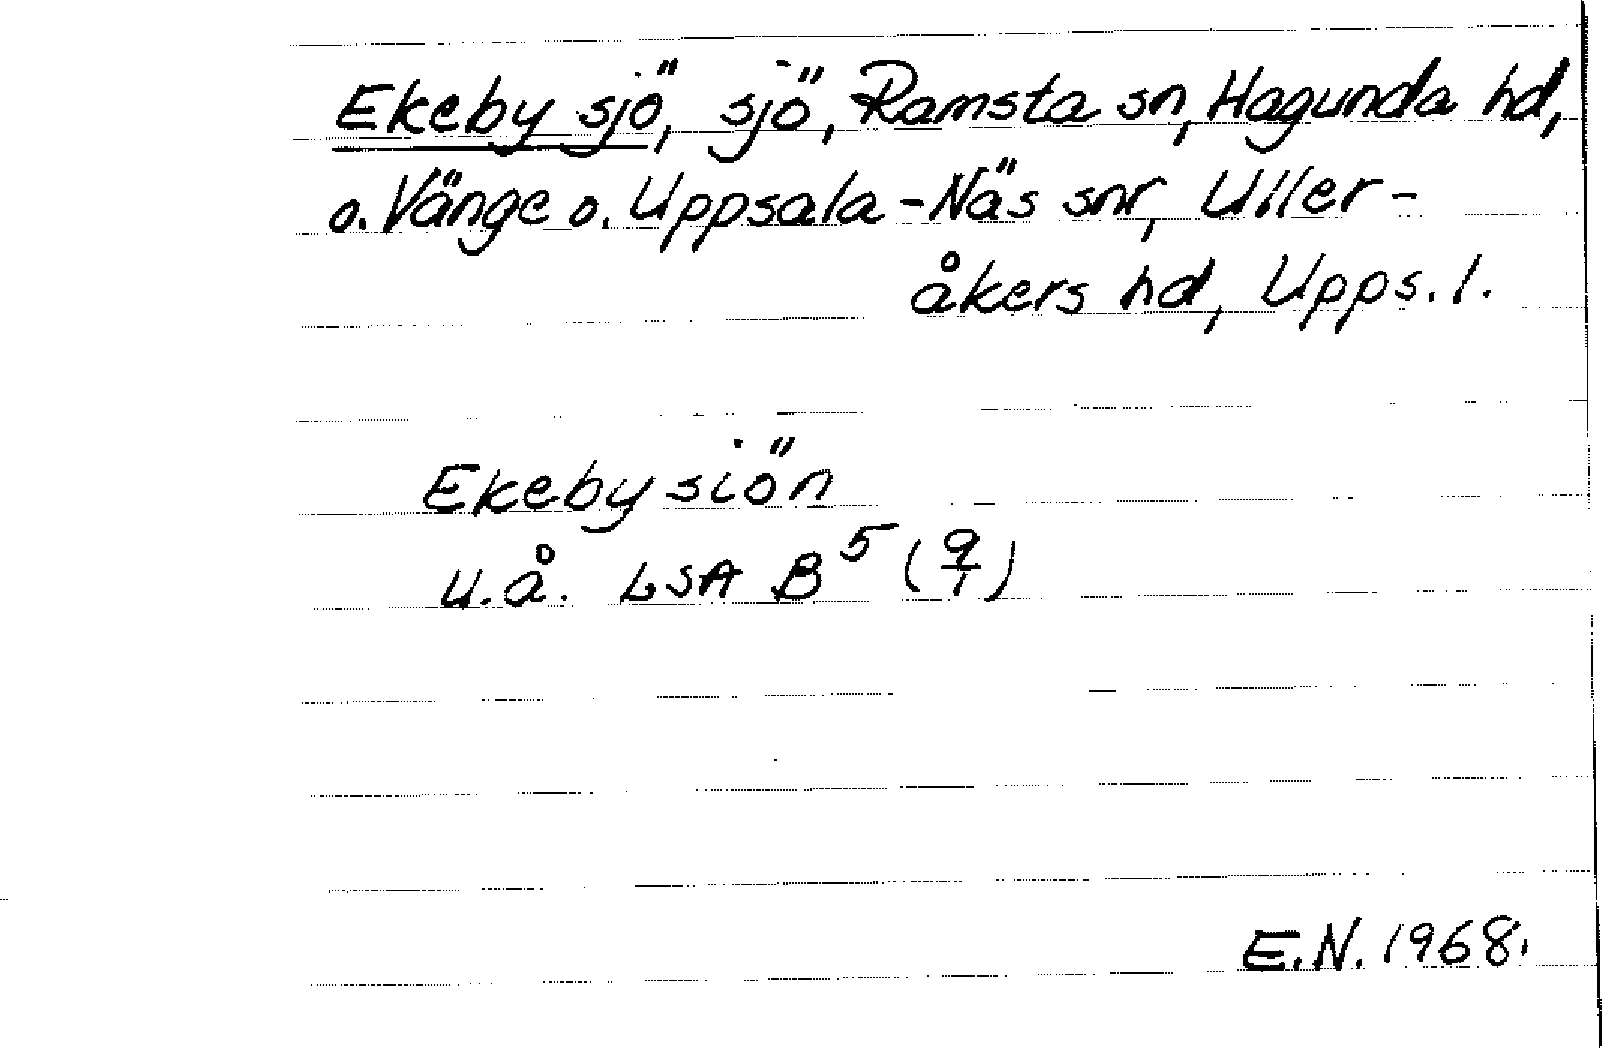 Ekeby sjö, sjö, Ramsta sn, Hagunda hd,
o. Vänge o. Uppsala-Näs snr, Uller-
åkers hd, Upps. l.
Ekeby siön
u.å. LSA B⁵ (9/1)
E.N. 1968.